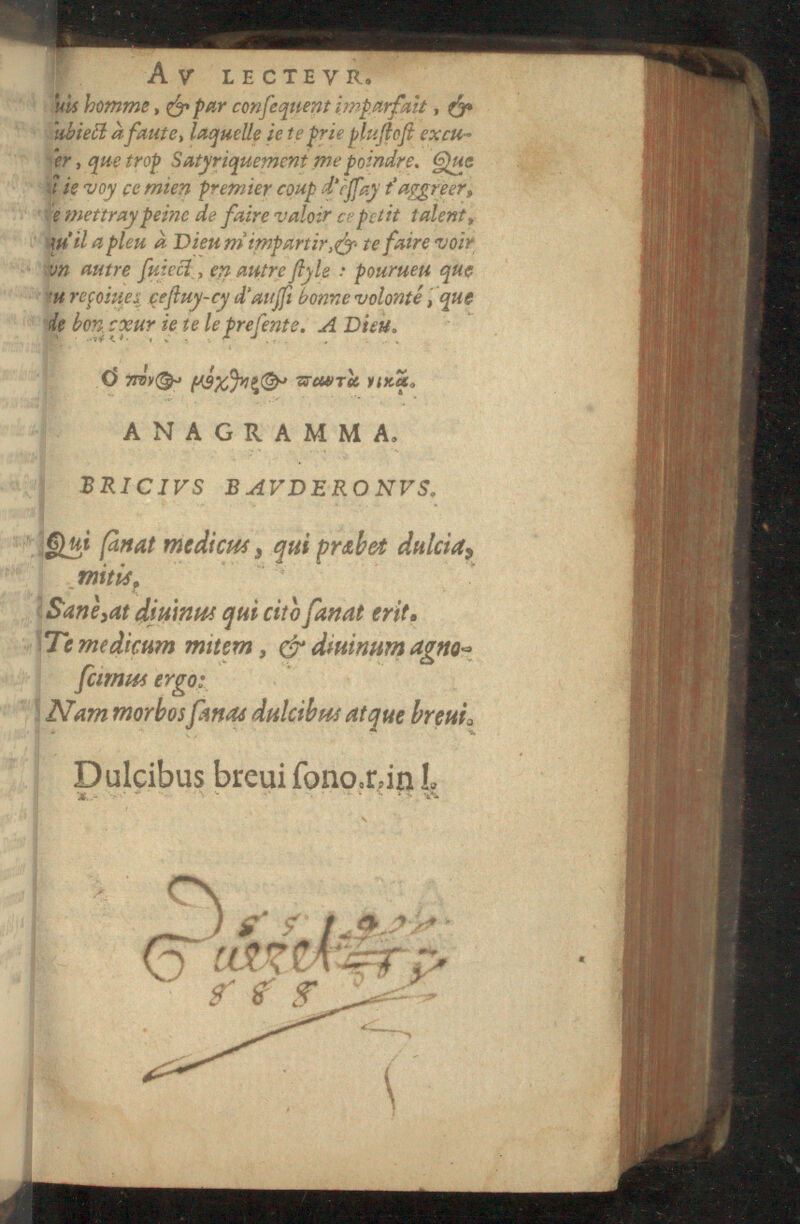 AV LECTEVR.
uis homme, & par conſequent imparfait, &
ubiect à faute, laquelle ie te prie pluſtoſt excu-
er, que trop Satyriquement me poindre. Que
i ie voy ce mien premier coup d'eſſay t'aggreer,
e mettray peine de faire valoir ce petit talent,
qu'il a pleu à Dieu m'impartir, & te faire voir
vn autre ſuiect, en autre ſtyle : pourueu que
tu reçoiues ceſtuy-cy d'auſſi bonne volonté, que
de bon cœur ie te le preſente. A Dieu.
Ὁ πόνος μόχθηρος παντα νικᾷ.
ANAGRAMMA.
BRICIVS BAVDERONVS.
Qui ſanat medicus, qui præbet dulcia,
mitis,
Sanè, at diuinus qui citò ſanat erit.
Te medicum mitem, & diuinum agno-
ſcimus ergo:
Nam morbos ſanas dulcibus atque breui.
Dulcibus breui ſono.r.in l.